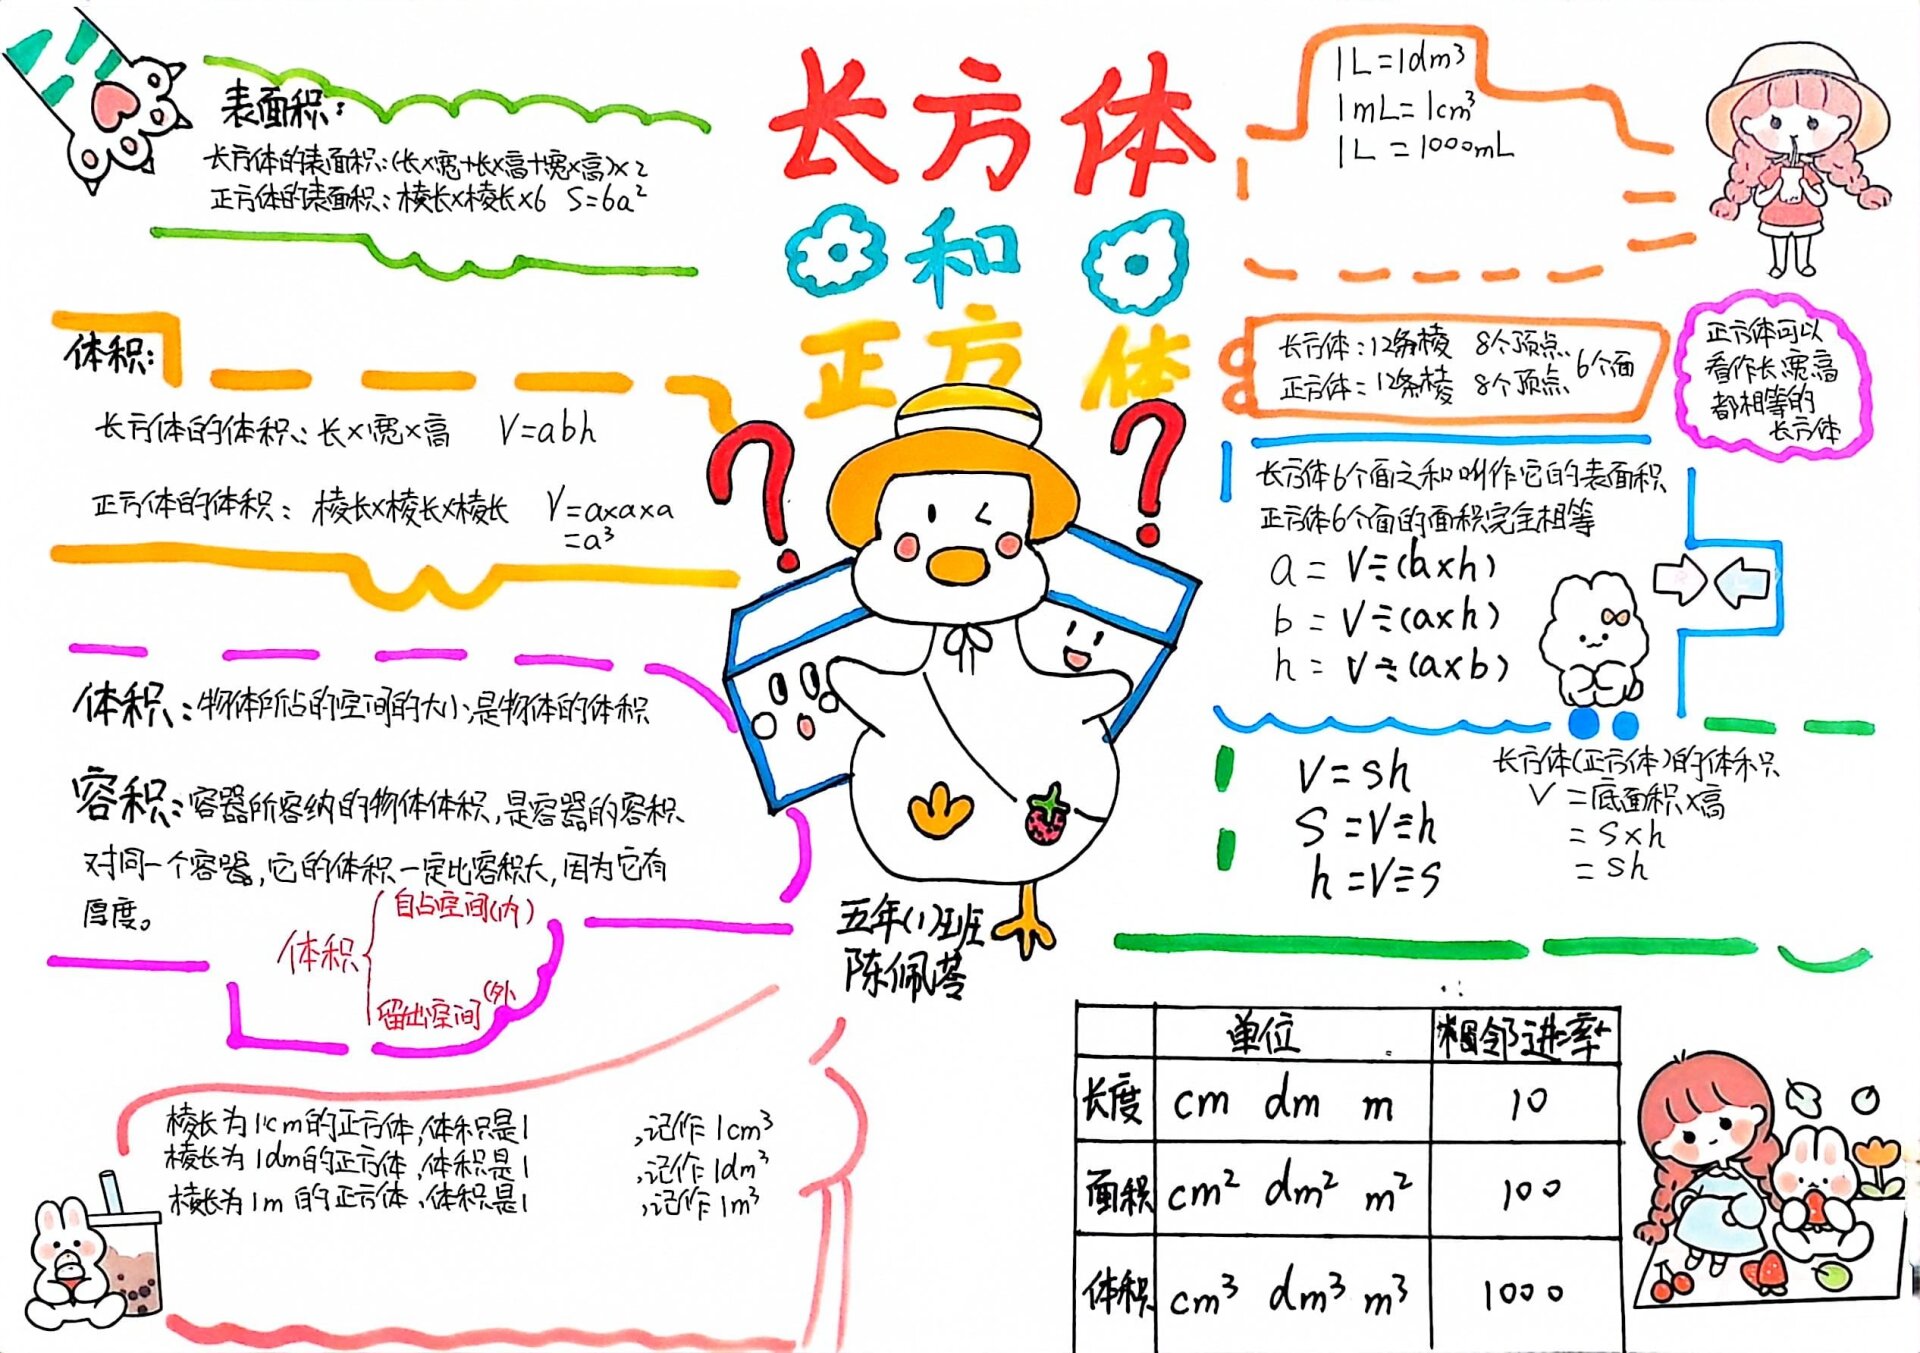 长方体
和
正方体
表面积:
长方体的表面积:(长×宽+长×高+宽×高)×2
正方体的表面积:棱长×棱长×6 S=6a²
体积:
长方体的体积:长×宽×高 V=abh
正方体的体积:棱长×棱长×棱长 V=a×a×a
=a³
体积:物体所占的空间的大小是物体的体积
容积:容器所容纳的物体体积,是容器的容积
对同一个容器,它的体积一定比容积大,因为它有
厚度。
体积
自占空间(内)
留出空间(外
棱长为1cm的正方体,体积是1 ,记作1cm³
棱长为1dm的正方体,体积是1 ,记作1dm³
棱长为1m的正方体,体积是1 ,记作1m³
五年(1)班
陈佩苓
1L=1dm³
1mL=1cm³
1L=1000mL
长方体:12条棱 8个顶点
正方体:12条棱 8个顶点
6个面
正方体可以
看作长宽高
都相等的
长方体
长方体6个面之和叫作它的表面积
正方体6个面的面积完全相等
a=V÷(b×h)
b=V÷(a×h)
h=V÷(a×b)
V=sh
S=V÷h
h=V÷S
长方体(正方体)的体积
V=底面积×高
=S×h
=sh
单位 相邻进率
长度 cm dm m 10
面积 cm² dm² m² 100
体积 cm³ dm³ m³ 1000